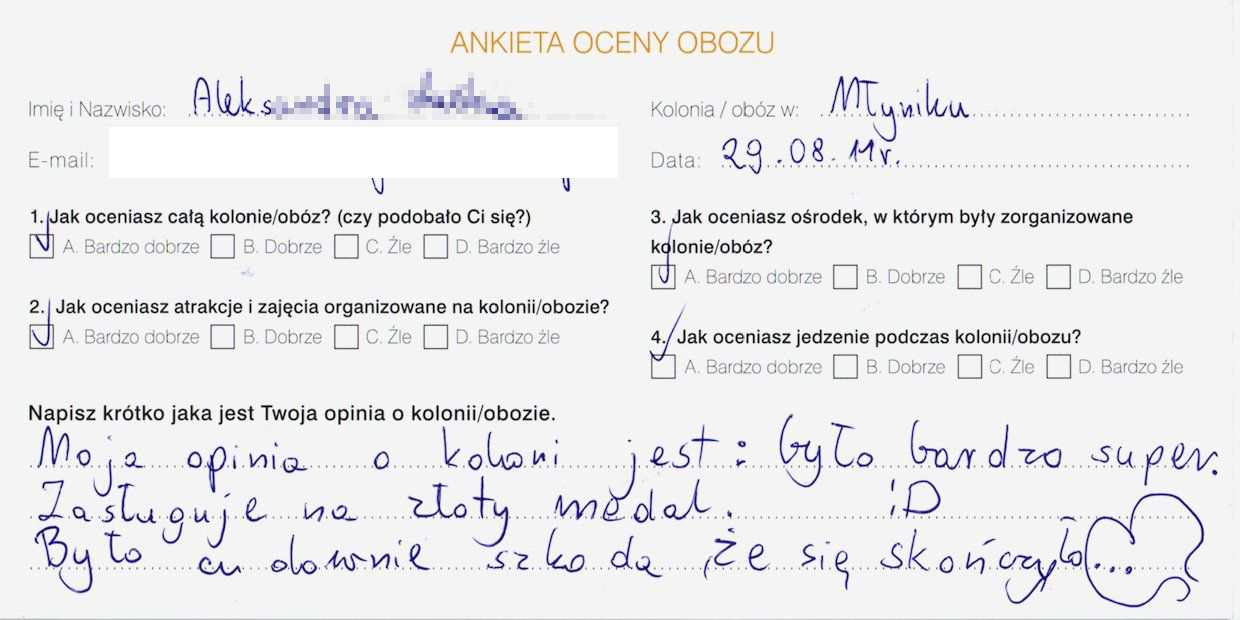 ANKIETA OCENY OBOZU
Imię i Nazwisko: Aleksandra
Kolonia / obóz w: Młyniku
E-mail:
Data: 29.08.11r.
1. Jak oceniasz całą kolonie/obóz? (czy podobało Ci się?)
A. Bardzo dobrze B. Dobrze C. Źle D. Bardzo źle
2. Jak oceniasz atrakcje i zajęcia organizowane na kolonii/obozie?
A. Bardzo dobrze B. Dobrze C. Źle D. Bardzo źle
3. Jak oceniasz ośrodek, w którym były zorganizowane
kolonie/obóz?
A. Bardzo dobrze B. Dobrze C. Źle D. Bardzo źle
4. Jak oceniasz jedzenie podczas kolonii/obozu?
A. Bardzo dobrze B. Dobrze C. Źle D. Bardzo źle
Napisz krótko jaka jest Twoja opinia o kolonii/obozie.
Moja opinia o koloni jest: było bardzo super.
Zasługuje na złoty medal. ;D
Było cu downie szkoda, że się skończyło...